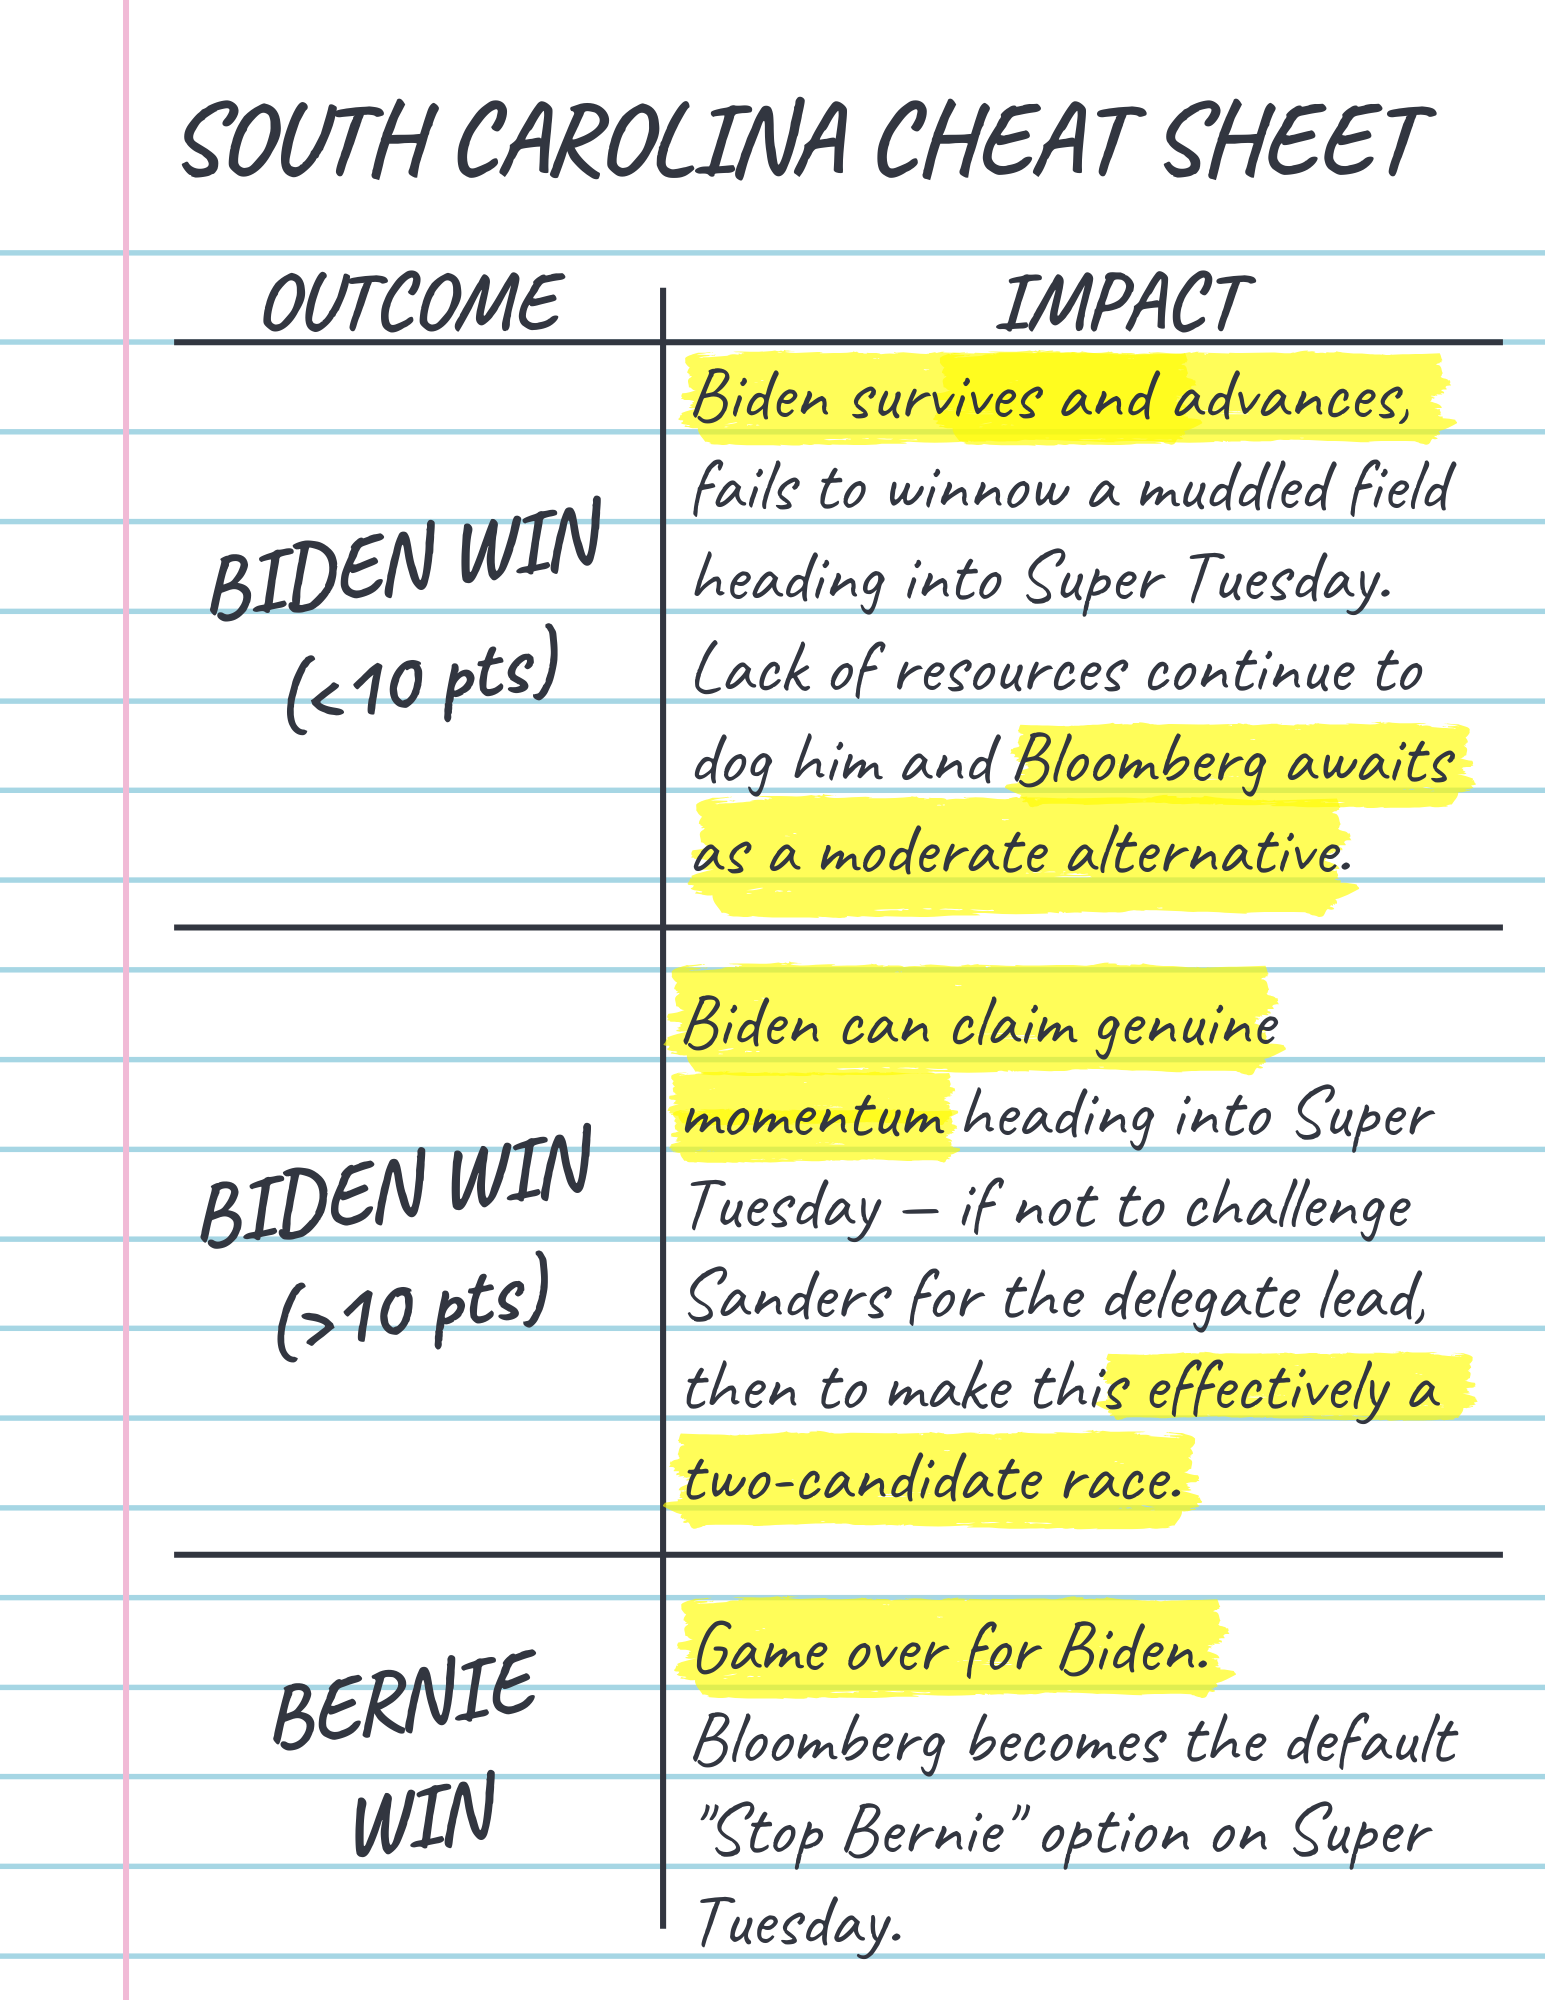 SOUTH CAROLINA CHEAT SHEET
OUTCOME
IMPACT
BIDEN WIN
(<10 pts)
Biden survives and advances,
fails to winnow a muddled field
heading into Super Tuesday.
Lack of resources continue to
dog him and Bloomberg awaits
as a moderate alternative.
BIDEN WIN
(>10 pts)
Biden can claim genuine
momentum heading into Super
Tuesday – if not to challenge
Sanders for the delegate lead,
then to make this effectively a
two-candidate race.
BERNIE
WIN
Game over for Biden.
Bloomberg becomes the default
"Stop Bernie" option on Super
Tuesday.